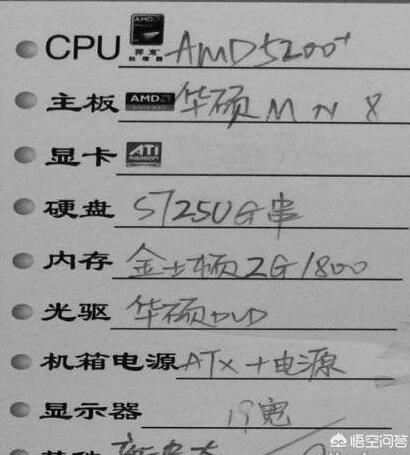 CPU AMD 羿龙 处理器 AMD5200+
主板 AMD 华硕 M N 8
显卡 ATI RADEON
硬盘 ST250G串
内存 金士顿2G/800
光驱 华硕DVD
机箱电源 ATX+电源
显示器 19宽
其他
悟空问答